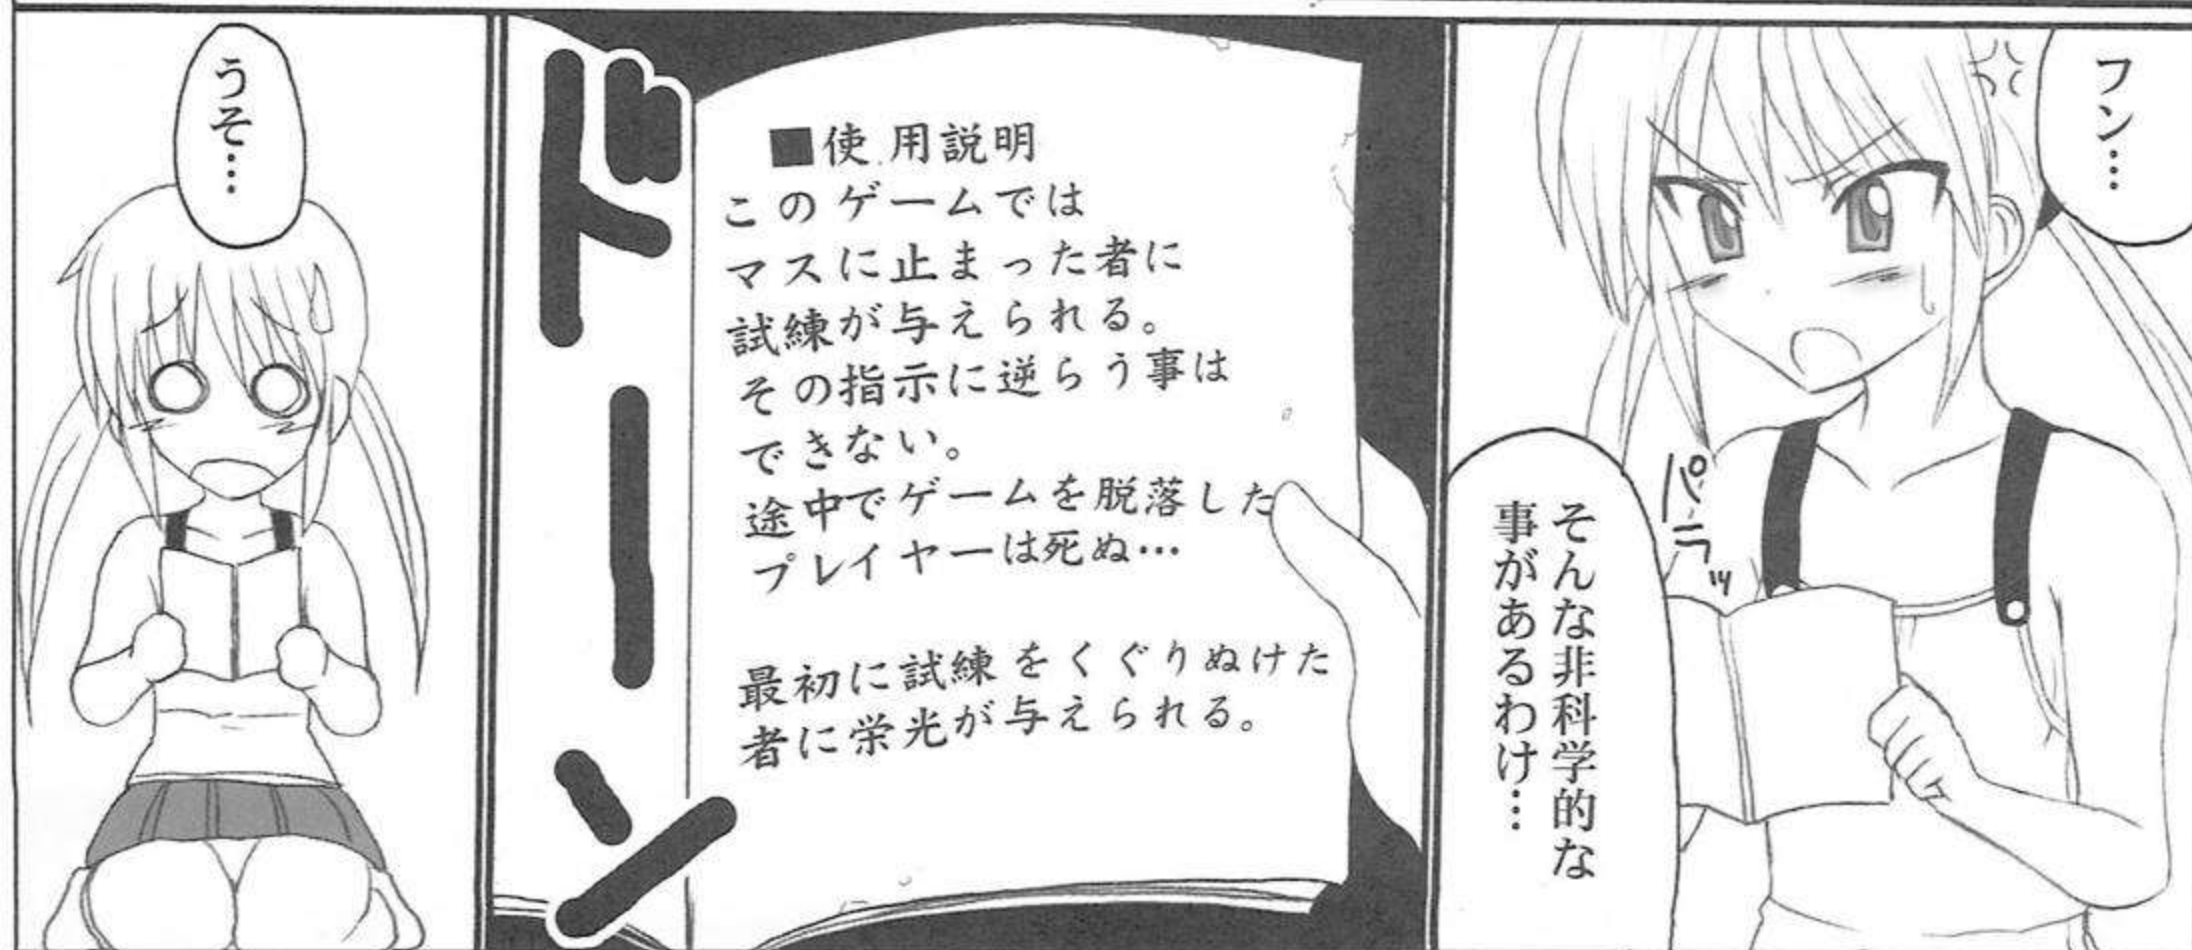 フン…
そんな非科学的な
事があるわけ…
パラッ
■使用説明
このゲームでは
マスに止まった者に
試練が与えられる。
その指示に逆らう事は
できない。
途中でゲームを脱落した
プレイヤーは死ぬ…
最初に試練をくぐりぬけた
者に栄光が与えられる。
ドーン
うそ…